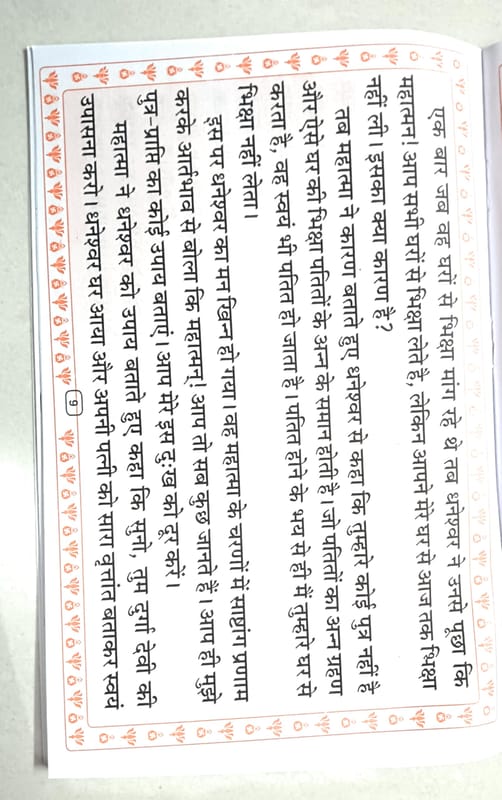 एक बार जब वह घरों से भिक्षा मांग रहे थे तब धनेश्वर ने उनसे पूछा कि
महात्मन! आप सभी घरों से भिक्षा लेते है, लेकिन आपने मेरे घर से आज तक भिक्षा
नहीं ली। इसका क्या कारण है?
तब महात्मा ने कारण बताते हुए धनेश्वर से कहा कि तुम्हारे कोई पुत्र नहीं है
और ऐसे घर की भिक्षा पतितों के अन्न के समान होती है। जो पतितों का अन्न ग्रहण
करता है, वह स्वयं भी पतित हो जाता है। पतित होने के भय से ही मैं तुम्हारे घर से
भिक्षा नहीं लेता।
इस पर धनेश्वर का मन खिन्न हो गया। वह महात्मा के चरणों में साष्टांग प्रणाम
करके आर्तभाव से बोला कि महात्मन्! आप तो सब कुछ जानते हैं। आप ही मुझे
पुत्र-प्राप्ति का कोई उपाय बताएं। आप मेरे इस दुःख को दूर करें।
महात्मा ने धनेश्वर को उपाय बताते हुए कहा कि सुनो, तुम दुर्गा देवी की
उपासना करो। धनेश्वर घर आया और अपनी पत्नी को सारा वृत्तांत बताकर स्वयं
9